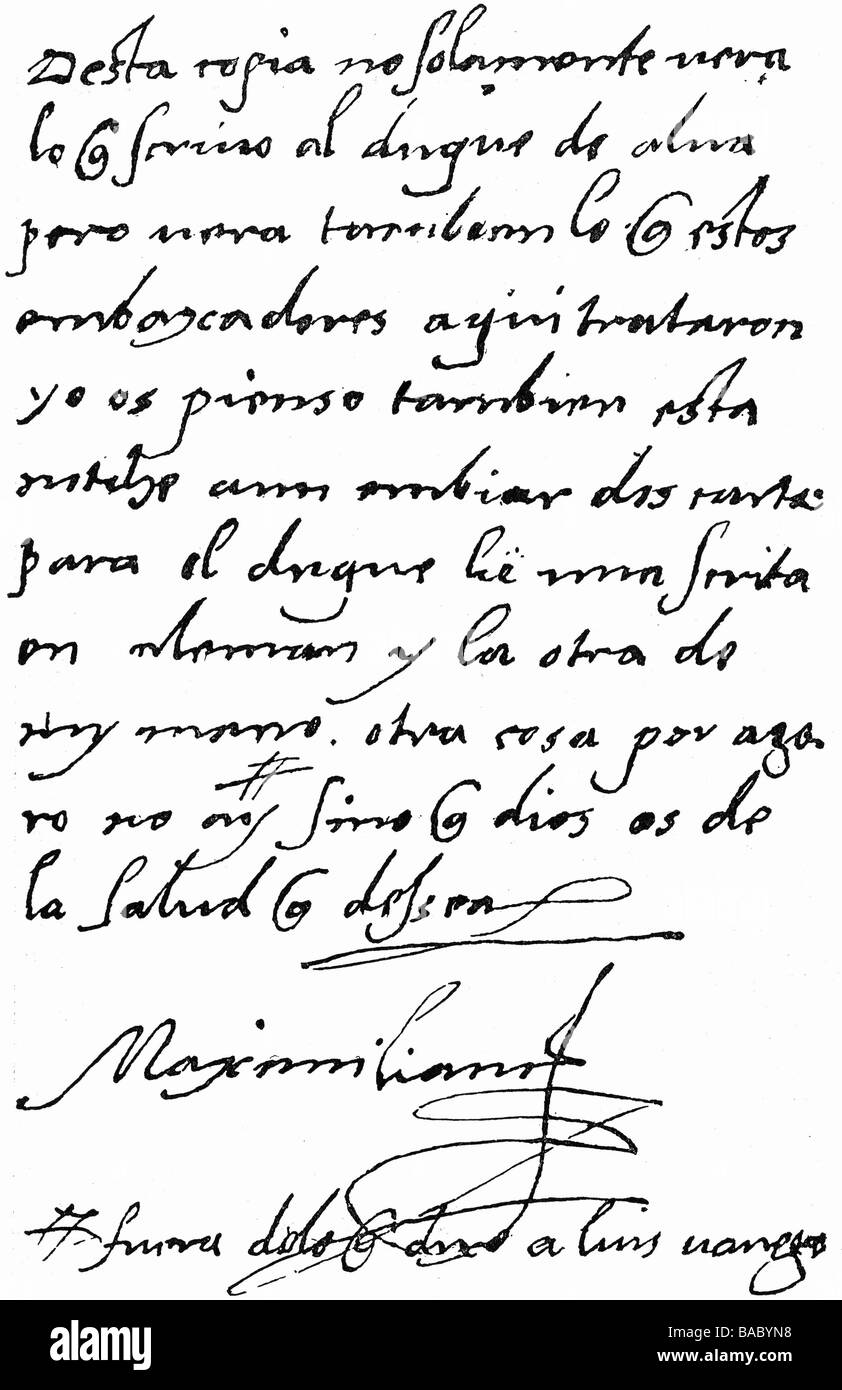 Desta copia no solamente vera
lo q̃ scrivo al duque de alva
pero vera tambien lo q̃ estos
embaxadores aqui trataron
yo os pienso tambien esta
notche aun embiar dos cartas
para el duque lie una scrita
en aleman y la otra de
my mano. otra cosa por ago
ro no ay # sino q̃ dios os de
la salud q̃ dessea
Maximiliano
# fuera delo q̃ dixe a luis vanegas
alamy
Image ID: BABYN8
www.alamy.com